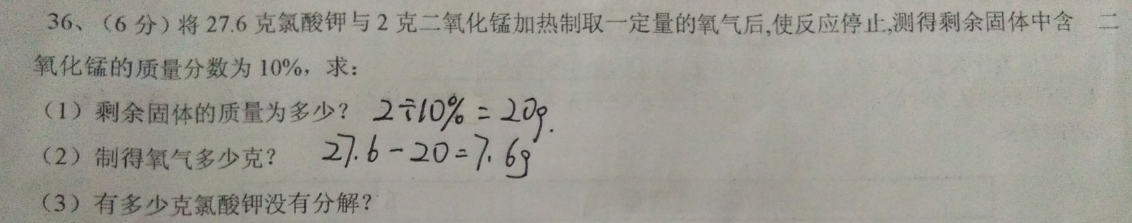 36、（6分）将 27.6 克氯酸钾与 2 克二氧化锰加热制取一定量的氧气后,使反应停止,测得剩余固体中含 二
氧化锰的质量分数为 10%，求：
（1）剩余固体的质量为多少？ 2÷10%=20g.
（2）制得氧气多少克？ 27.6-20=7.6g
（3）有多少克氯酸钾没有分解？